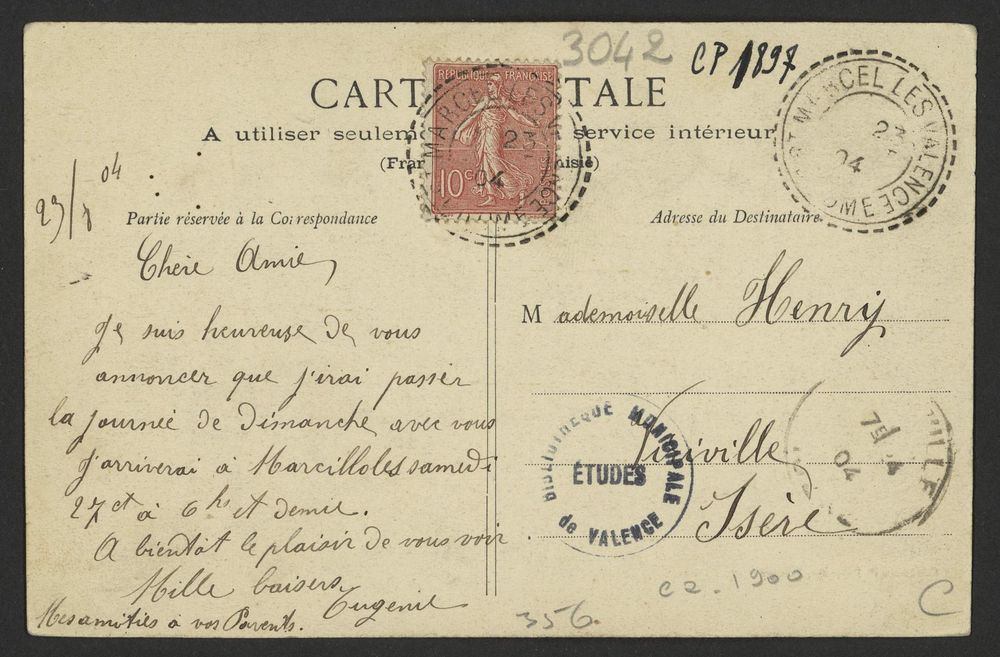 3042
CP 1897
CARTE POSTALE
A utiliser seulem service intérieur
(Fran nisie)
REPUBLIQUE FRANÇAISE
10c
MARCEL LES
23
04
ST MARCEL LES VALENCE
23
04
DROME
23/8 04
Partie réservée à la Correspondance
Adresse du Destinataire
Chère Amie,
Je suis heureuse de vous
annoncer que j'irai passer
la journée de Dimanche avec vous
J'arriverai à Marcilloles samedi
27 ct à 6 hs et demie.
A bientôt le plaisir de vous voir
Mille baisers
Eugenie
Mes amitiés a vos Parents.
Mademoiselle Henry
Viriville
Isère
BIBLIOTHEQUE MUNICIPALE
ÉTUDES
de VALENCE
VILLE
04
C2.1900
356.
C